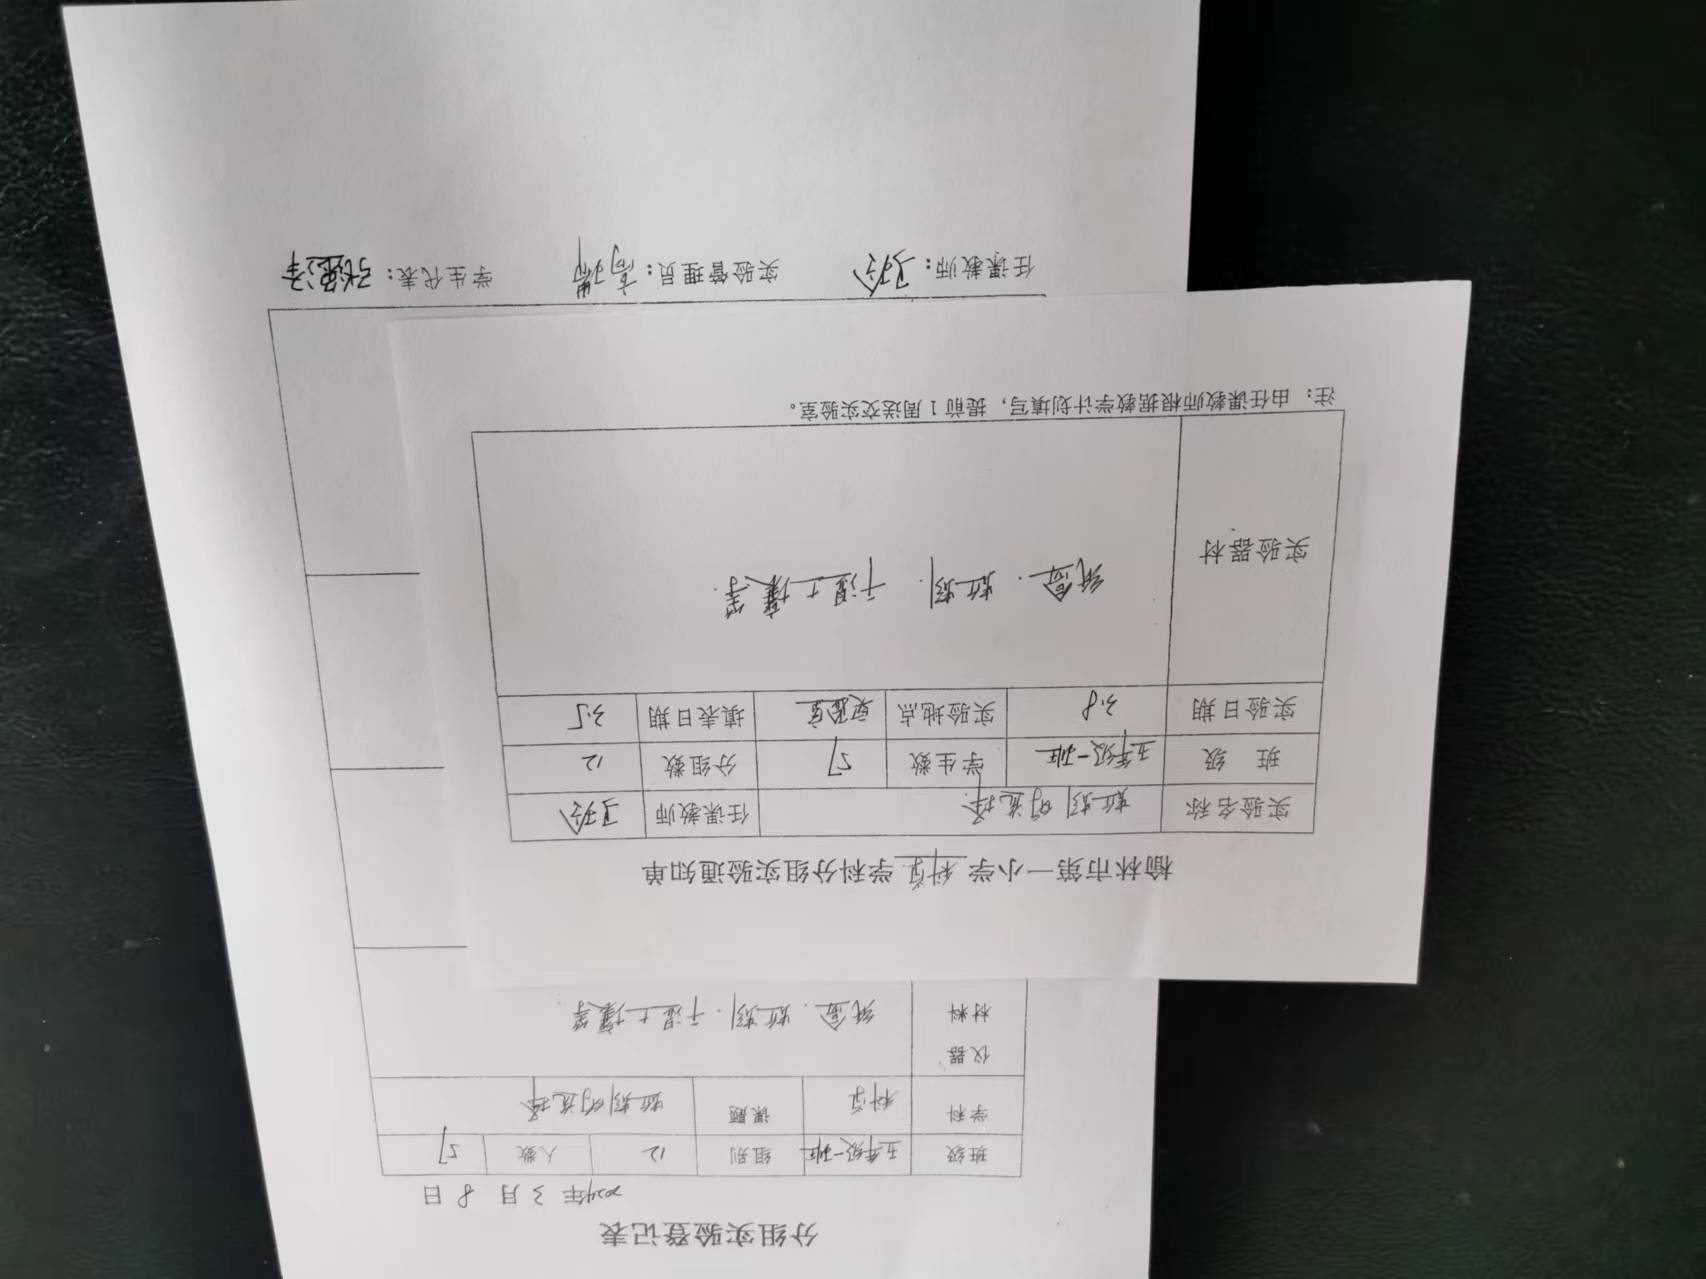 榆林市第一小学科学学科分组实验通知单
实验名称 蚯蚓的选择 任课教师
班 级 五年级一班 学生数 57 分组数 12
实验日期 3.8 实验地点 实验室 填表日期 3.5
实验器材 纸盒. 蚯蚓. 干湿土壤等.
注：由任课教师根据教学计划填写，提前1周送交实验室。
分组实验登记表
2024年 3 月 8 日
班级 五年级一班 组别 12 人数 57
学科 科学 课题 蚯蚓的选择
仪器
材料 纸盒. 蚯蚓. 干湿土壤等.
任课教师： 实验管理员：高 学生代表：张